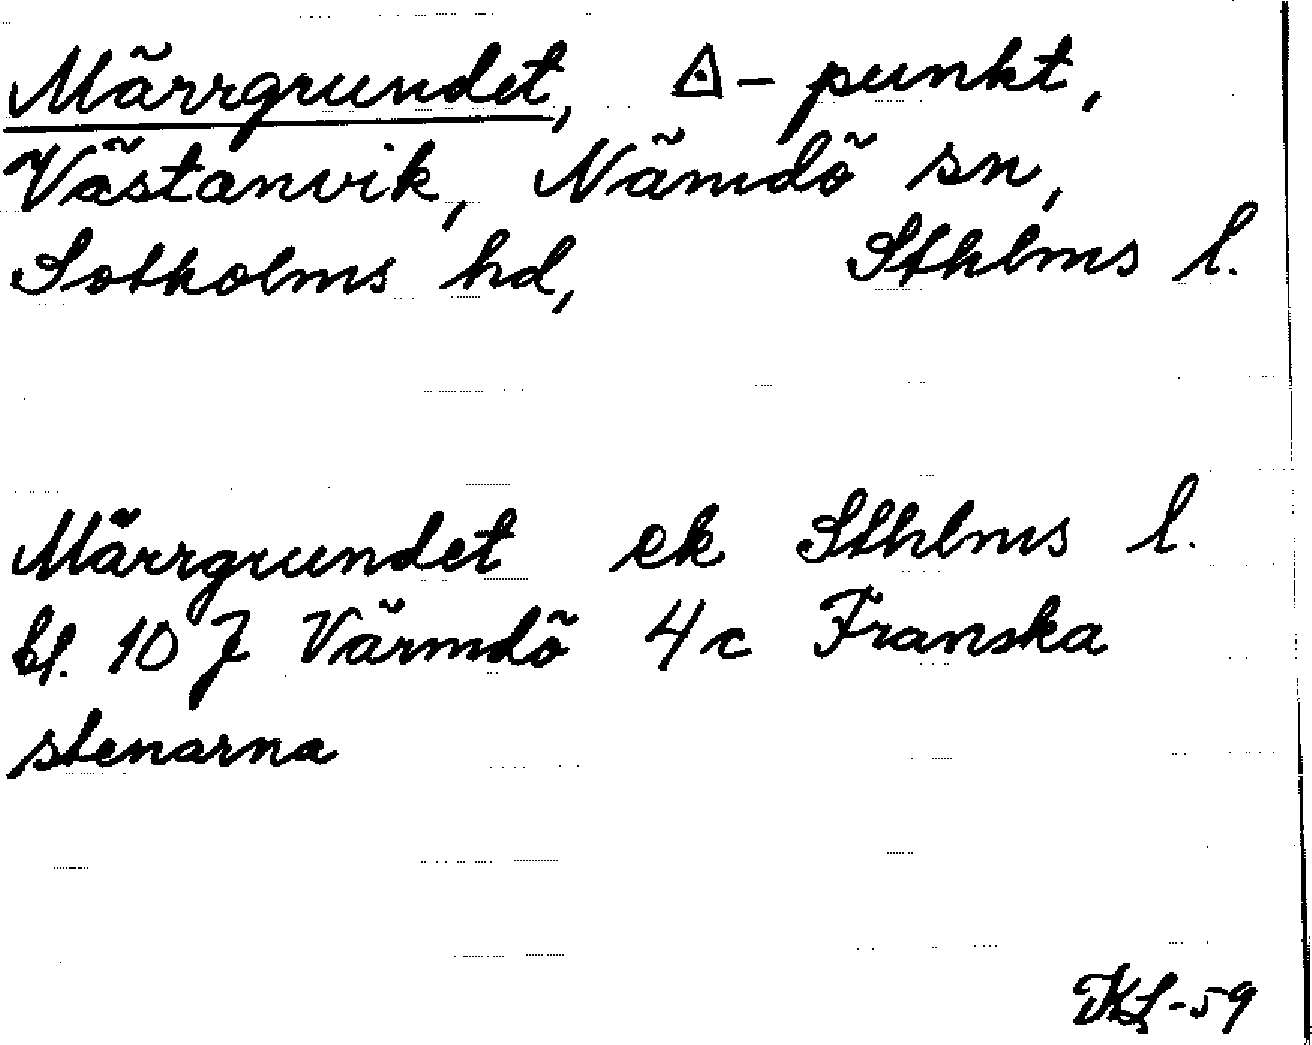 Märrgrundet, ◬-punkt,
Västanvik, Nämdö sn,
Sotholms hd, Sthlms l.
Märrgrundet ek Sthlms l.
bl. 10 J Värmdö 4c Franska
stenarna
KL-59